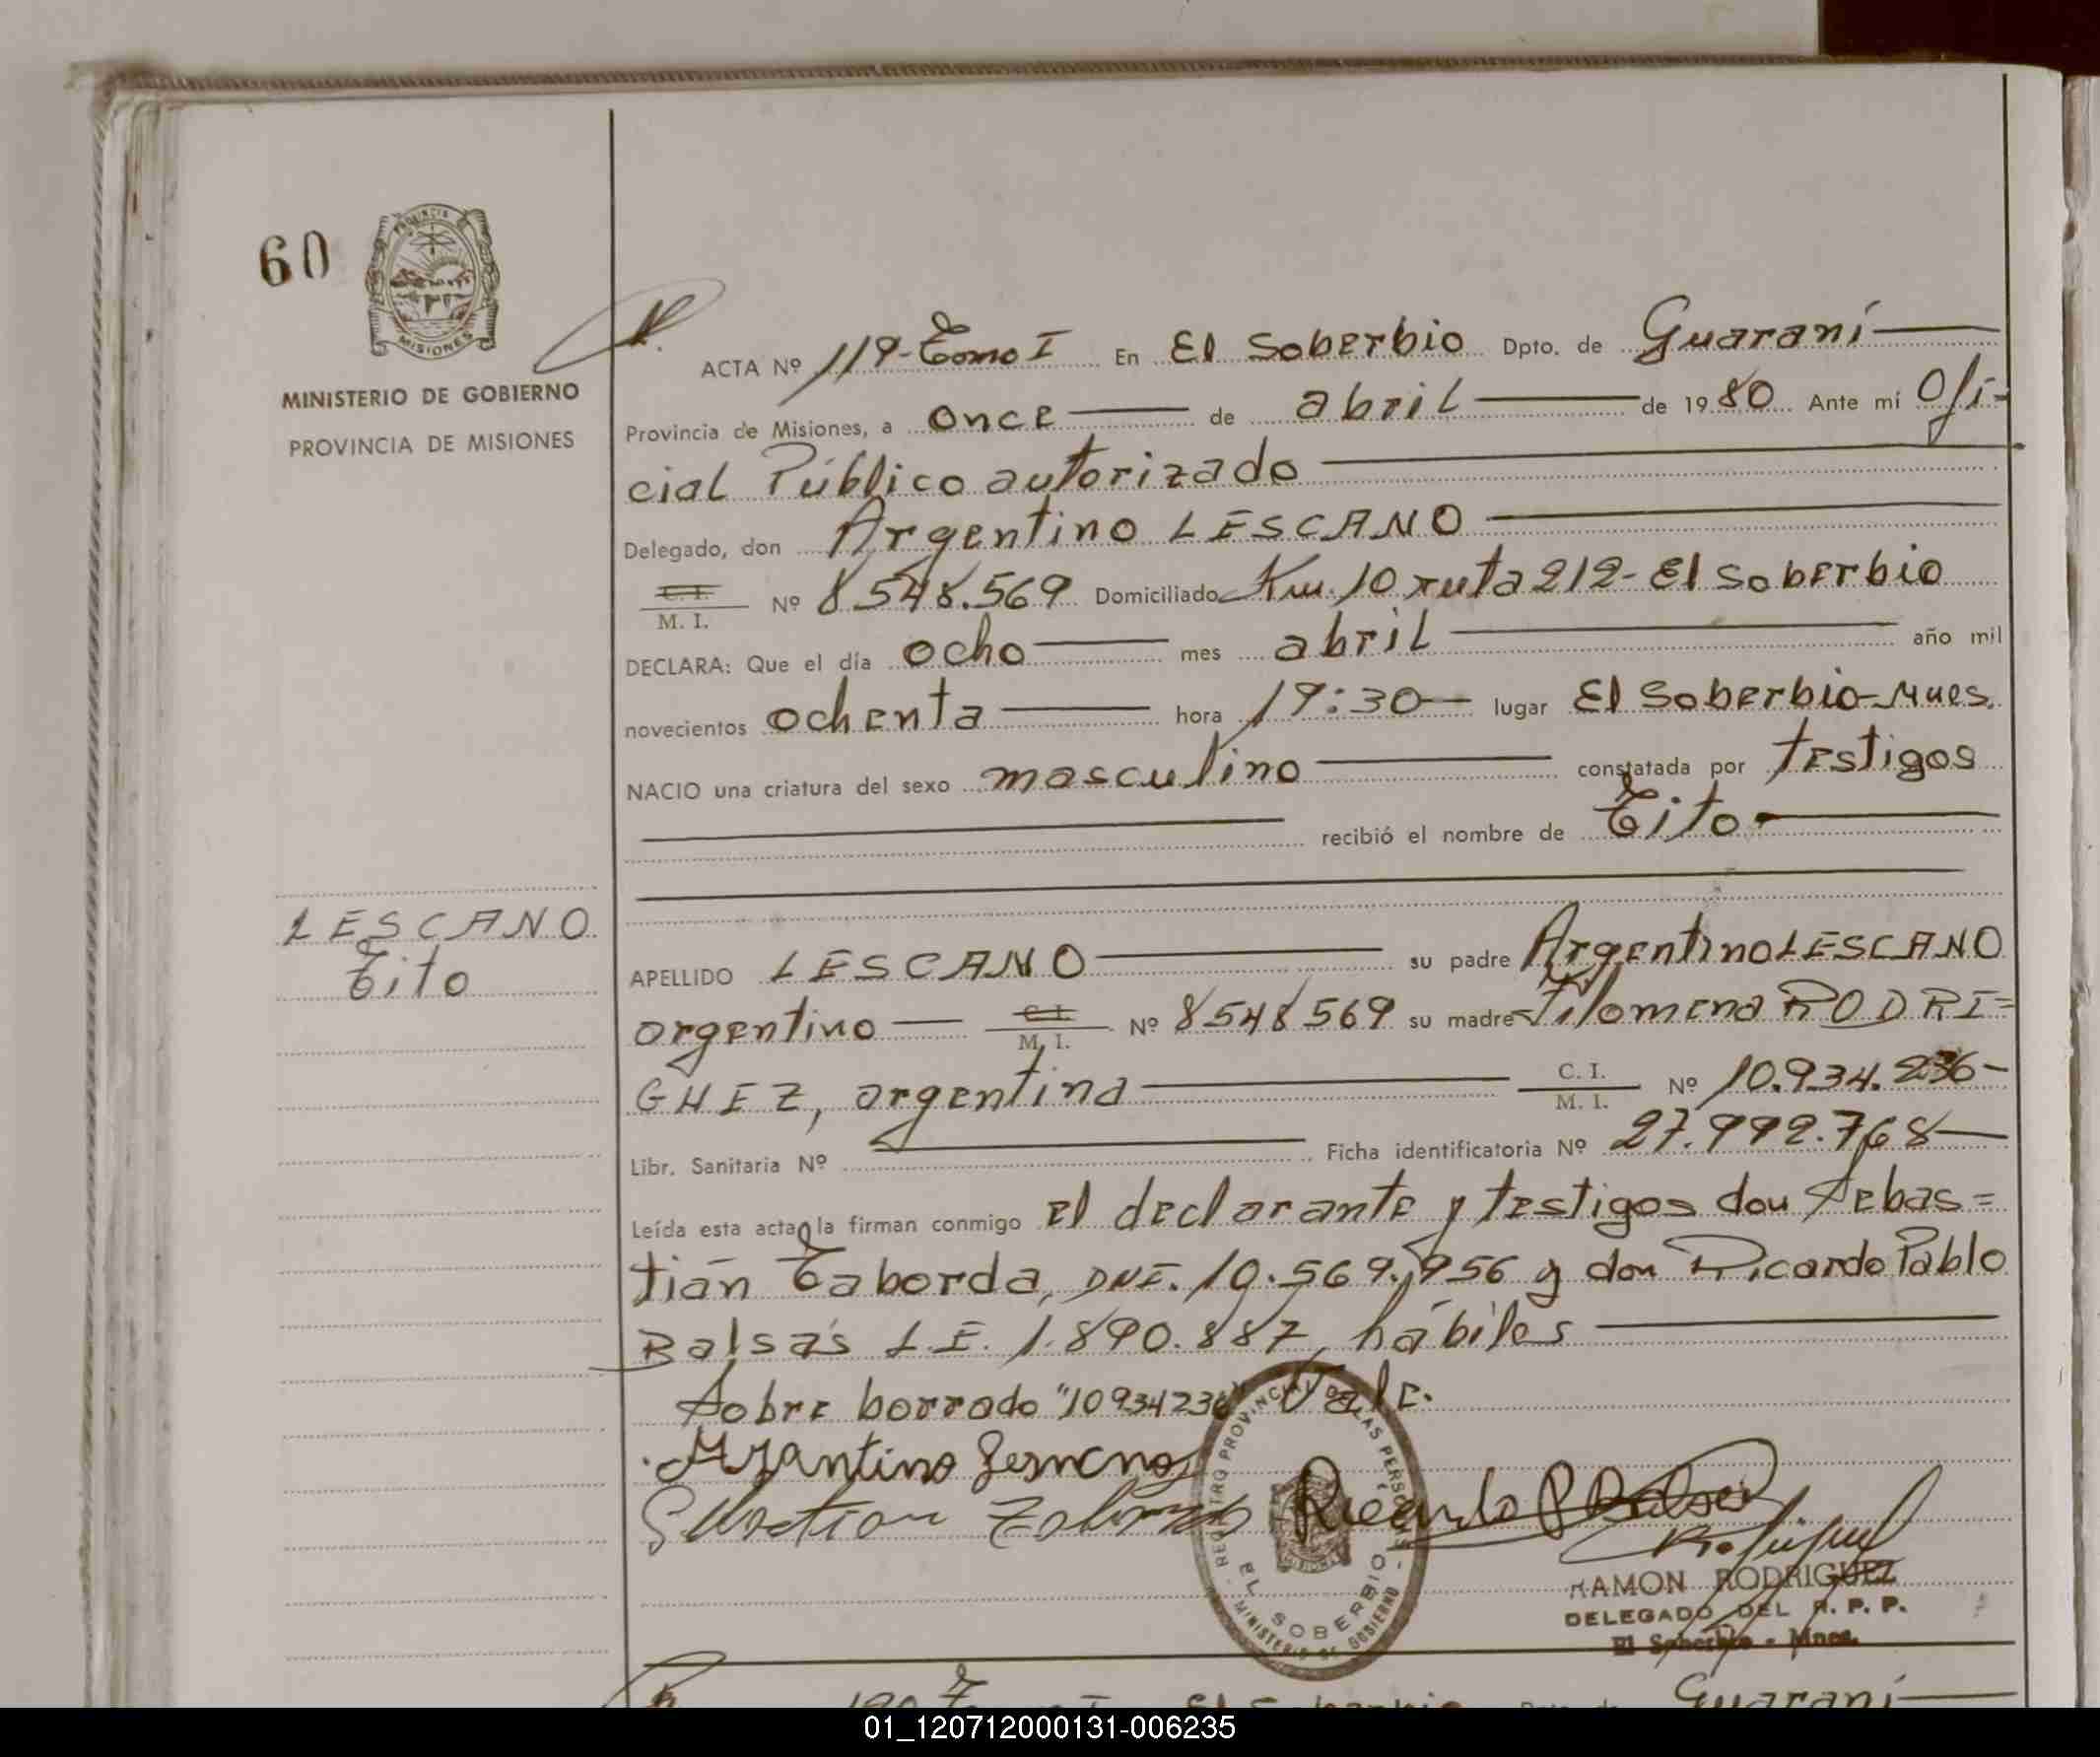 60
PROVINCIA
MISIONES
MINISTERIO DE GOBIERNO
PROVINCIA DE MISIONES
LESCANO
Tito
ACTA Nº 119-Tomo I En El Soberbio Dpto. de Guaraní
Provincia de Misiones, a once de abril de 1980 Ante mí Ofi-
cial Público autorizado
Delegado, don Argentino LESCANO
C. I. M. I. Nº 8548.569 Domiciliado Km. 10 ruta 212-El Soberbio
DECLARA: Que el día ocho mes abril año mil
novecientos ochenta hora 19:30 lugar El Soberbio-Mnes.
NACIO una criatura del sexo masculino constatada por testigos
recibió el nombre de Tito
APELLIDO LESCANO su padre Argentino LESCANO
argentino C. I. M. I. Nº 8548569 su madre Filomena RODRI=
GUEZ, argentina C. I. M. I. Nº 10.934.236-
Libr. Sanitaria Nº Ficha identificatoria Nº 27.992.768
Leída esta acta la firman conmigo el declarante y testigos don Sebas=
tián Taborda, DNI. 10.569.956 y don Ricardo Pablo
Balsas L.E. 1.890.887, hábiles
Sobre borrado "10934236" Vale.
Ricardo P Balsas
REGISTRO PROVINCIAL DE LAS PERSONAS
EL SOBERBIO
MINISTERIO DE GOBIERNO
RAMON RODRIGUEZ
DELEGADO DEL R. P. P.
El Soberbio - Mnes.
Guaraní
01_120712000131-006235